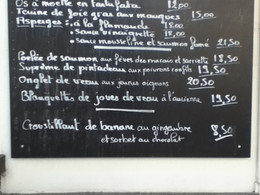 Os à moelle en tartufata 12.00
Terrine de foie gras aux mangues 15.00
Asperges: à la flamande 12.00
• Sauce vinaigrette 12.00
• Sauce mousseline et saumon fumé 21,50
Poêlée de saumon aux fèves des marais et sarriette 18,50
Suprême de pintadeau aux poivrons confits 19,50
Onglet de veau aux jeunes oignons 20,50
Blanquettes de joues de veau à l'ancienne 19,50
Croustillant de banane au gingembre 8,50
et sorbet au chocolat